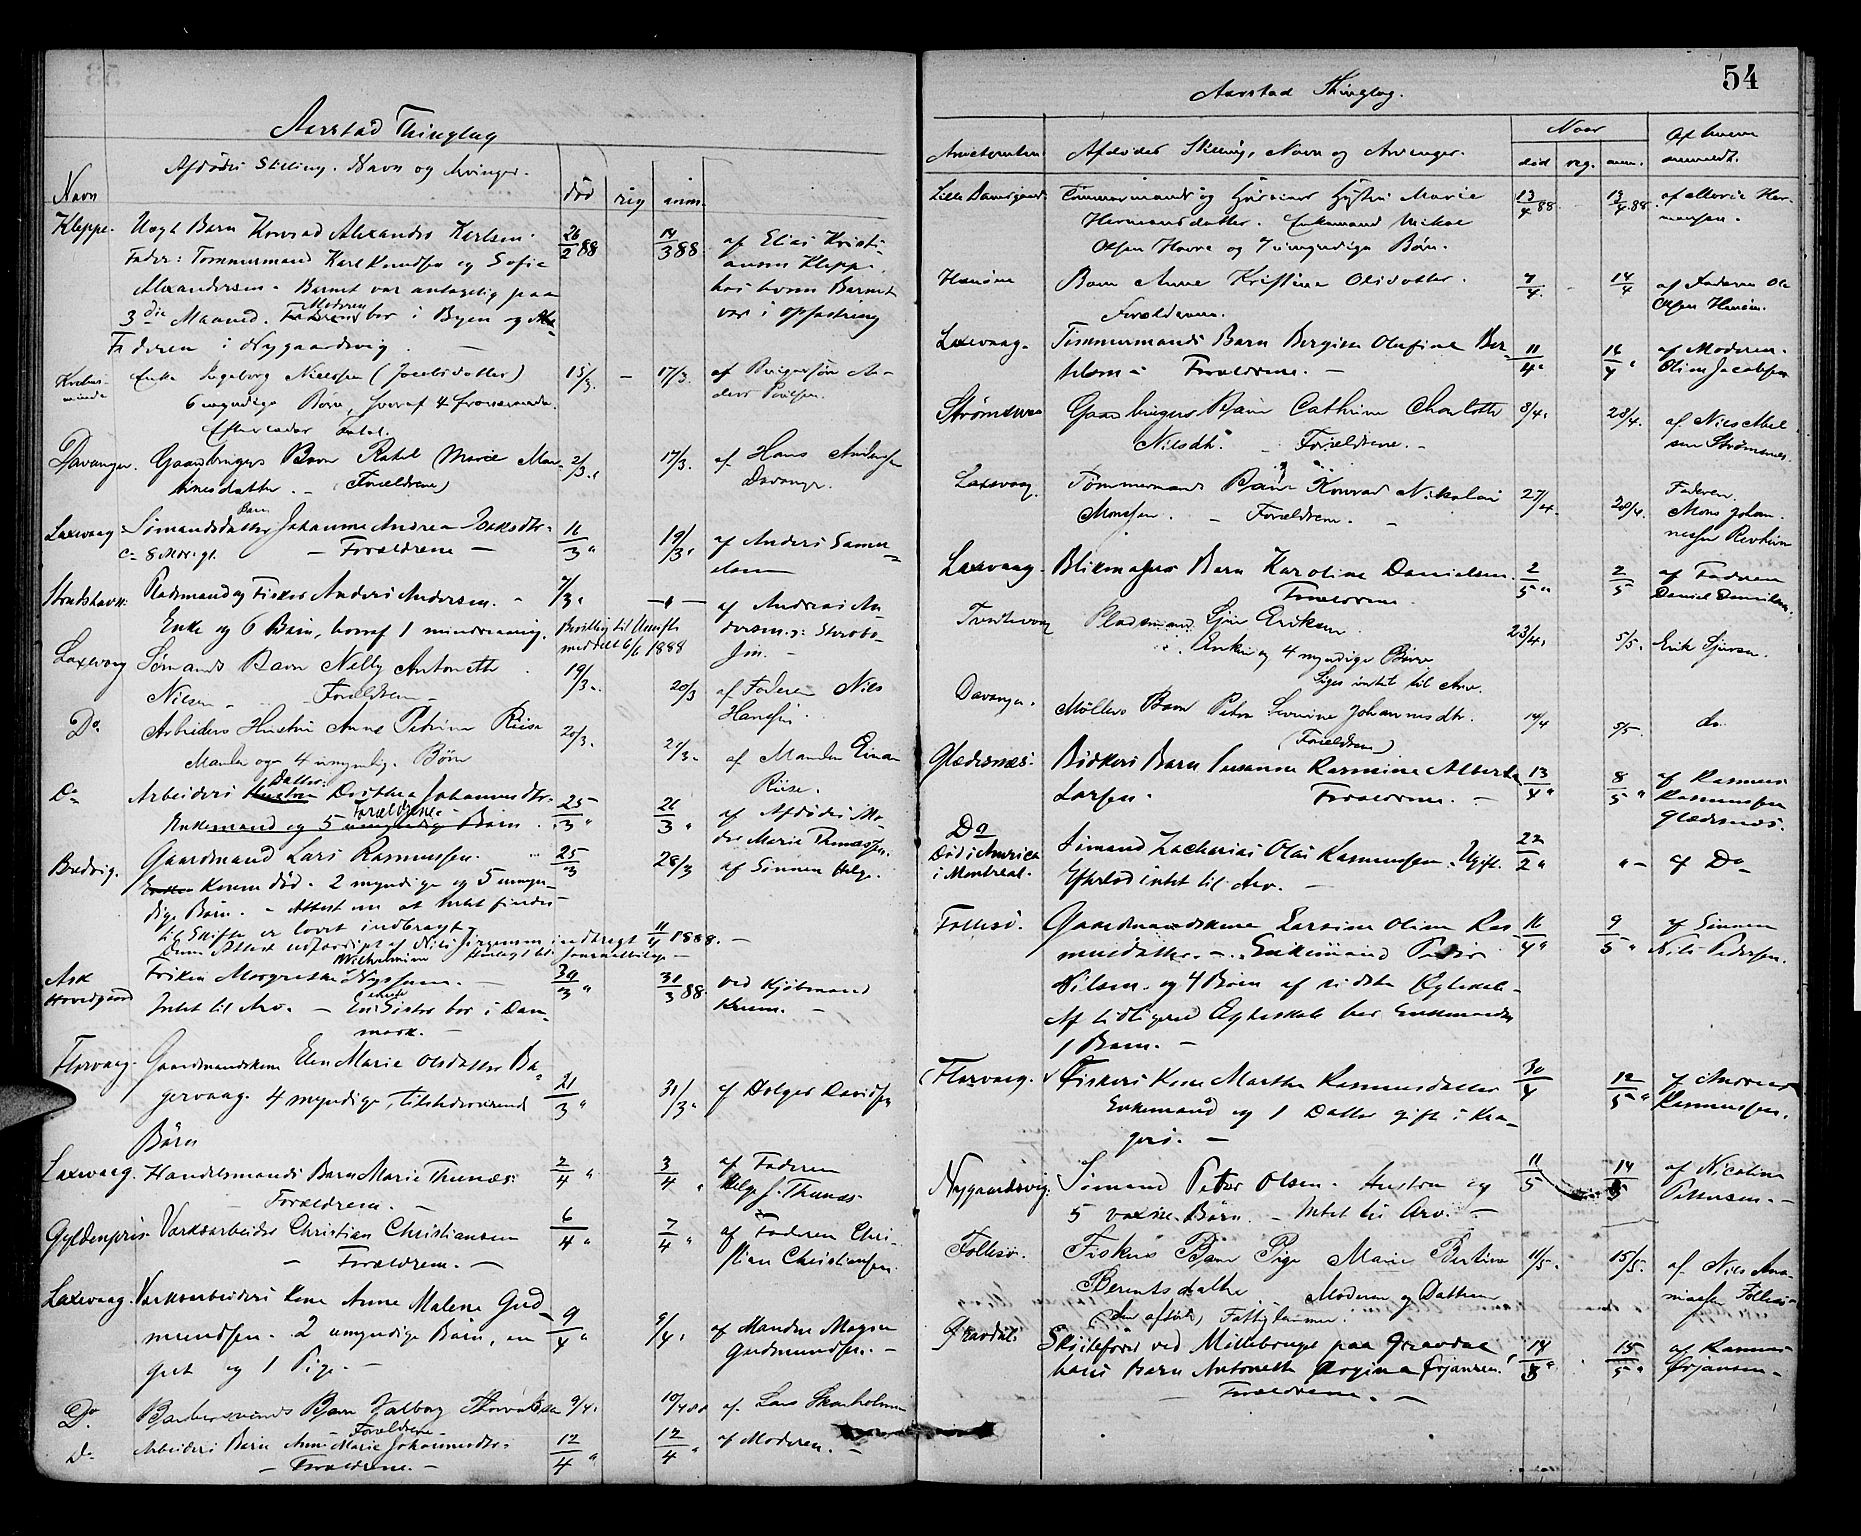 Aarstad Thinglag
Afdødes Stilling, Navn og Arvinger.
Navn død reg anm.
Kleppe. Uegt Barn Konrad Alexander Karlsen. 26/2 88 14/3 88 af Elias Kristi-
Fader: Tømmermand Karl Knudsen og Sofie ansen Kleppe,
Alexandersen. Barnet var antagelig paa hos hvem Barnet
3die Maaned. Moderen bor i Byen og var i opfostring
Faderen i Nygaardsvig. —
Enke Ingeborg Nielsen (Jacobsdatter) 15/3. — 17/3. af Svigersøn An-
6 myndige Børn, hvoraf 4 fraværende. ders Poulsen.
Efterlader intet.
Davanger. Gaardbrugers Barn Rakel Marie Mar- 2/3. 17/3. af Hans Andersen
tinesdatter. — (Forældrene) Davanger.
Laxevaag Sømandsdatter Barn Johanne Andrea Isaksdtr. 16/3 " 19/3. af Anders Samu-
c. 8 Mdr. gl. — Forældrene — elsen
Pladsmand og Fisker Anders Andersen. 7/3. — " — af Andreas An-
Enke og 6 Børn, hvoraf 1 mindreaarig. Bevilling til Uskifte dersen
meddelt 6/6 1888
Laxevaag Sømands Barn Nelly Antonette 19/3. 20/3 af Faderen Nils
Nilsen. — Forældrene — Hansen.
Do Arbeiders Hustru Anne Petrine Riise 20/3. 21/3. af Manden Einar
Manden og 4 umyndig. Børn Riise.
Do Arbeiders Hustru Datter Dorthea Johannesdtr. 25/3 " 26/3 " af Afdødes Mo-
Enkemand og 5 umyndige Børn. Forældrene. der Marie Thomassen.
Bredvig. Gaardmand Lars Rasmussen. 25/3 28/3 af Sønnen Helge.
Enken Konen død. 2 myndige og 5 umyn-
dige Børn. — Attest om at Intet findes
til Skifte er lovet indbragt.
Denne Attest udfærdiget af Nils Jørgensen indbragt 11/4 1888. —
Ask Frøken Margrethe Wilhelmine Nyssum. — 30/3 " 31/3 88. ved Kjøbmand
Hovedgaard Intet til Arv. — En Søster bor i Dan- Krum. —
mark. —
Florvaag. Gaardmandskone Elen Marie Olsdatter Ba- 21/3 " 31/3 " af Holger Davidsen
gervaag. 4 myndige, tilstedeværende
Børn
Laxevaag. Handelsmands Barn Marie Thunæs. 2/4 " 3/4 " af Faderen
— Forældrene. — Helge J. Thunæs.
Gyldenpris. Værksarbeider Christian Christiansen 6/4 " 7/4 " af Faderen Chri-
— Forældrene. — stian Christiansen.
Laxevaag. Værksarbeiders Kone Anne Malene Gud- 9/4 " 9/4. af Manden Magne
mundsen. 2 umyndige Børn, en Gudmundsen. —
gut og 1 Pige. —
Do Barbersvends Barn Valborg 9/4. 10/4 88 af Lars Skarholmen
— Forældrene —
Do Arbeiders Barn Anne Marie Johannesdtr. 12/4 " 12/4 " af Moderen. —
— Forældrene. —
54
Aarstad Thinglag.
Naar Af hvem
Afdødes Stilling, Navn og Arvinger. død reg. anm. anmeldt.
Lille Damsgaard Tømmermands og Hustru Marie 13/4 88 13/4 88 af Marie Her-
Hermansdatter. Enkemand Mikal mansen.
Olsen Hovre og 7 umyndige Børn.
Hanøen Barn Anne Kristine Olsdatter. 7/4. 14/4 af Faderen Ole
Forældrene. Olsen Hanøen.
Laxevaag. Tømmermands Barn Bergine Olufine Ber- 11/4 " 16/4 " af Moderen.
telsen — Forældrene. — Oline Jacobsen
Strømsnes Gaardbrugers Barn Cathrine Charlotte 8/4. 20/4. af Nils Abel-
Nilsdtr. — Forældrene. — sen Strømsnes.
Laxevaag. Tømmermands Barn Konrad Nikolai 27/4. 28/4. Faderen
Monsen. — Forældrene. — Mons Johan-
nessen
Laxevaag. Blikmagers Barn Karoline Danielsen. 2/5 " 2/5 af Faderen
Forældrene. Daniel Danielsen.
Pladsmand Sjur Eriksen. 23/4. 5/5. Erik Sjursen.
Enke og 4 myndige Børn
Siges intet til Arv.
Davanger. Møllers Barn Petra Severine Johannesdtr. 14/4 5/5. do.
(Forældrene)
Glædesnæs. Bødkers Barn Susanne Rasmine Alberta 13/4 " 8/5 " af Rasmus
Larsen. Forældrene. — Rasmussen
Glædesnæs.
Do Sømand Zacharias Olai Rasmussen. Ugift. 22/2 " " — af Do
Død i America Efterlod intet til Arv. —
i Montreal.
Follesø. Gaardmandskone Larsine Oline Ras- 16/4 " 9/5 " af Sønnen
musdatter. — Enkemand Peder Nils Pedersen.
Nilsen. og 4 Børn af sidste Ægteskab.
Af tidligere Ægteskab har Enkemanden
1 Barn. —
Florvaag. Fiskers Kone Marthe Rasmusdatter 30/4 12/5 " af Andreas
Enkemand og 1 Datter gift i Kra- Rasmussen.
gerø. —
Nygaardsvig. Sømand Peter Olsen. Hustru og 11/5 14/5 af Nicoline
5 voxne Børn. — Intet til Arv. — Pettersen. —
Follesø. Fiskers Barn Pige Marie Bertine 11/5. 15/5. af Nils Am-
Berentsdatter Moderen og Datteren
(den afdøde) Fattiglemmer. Follesø
Gravdal. ved Møllebruget paa Gravdal 14/5 " 15/5 " af Rasmus
Barn Antonette Ørjansen. Ørjansen —
— Forældrene. —